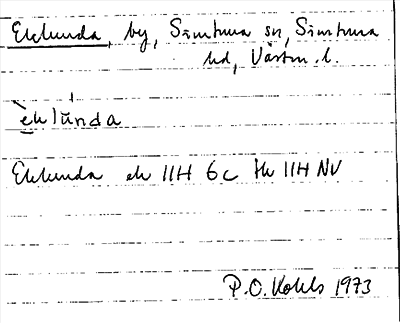 Eklunda, by, Simtuna sn, Simtuna
hd, Västm. l.
èklúnda
Eklunda ek 11H 6c tk 11H NV
P.O. Kohls 1973